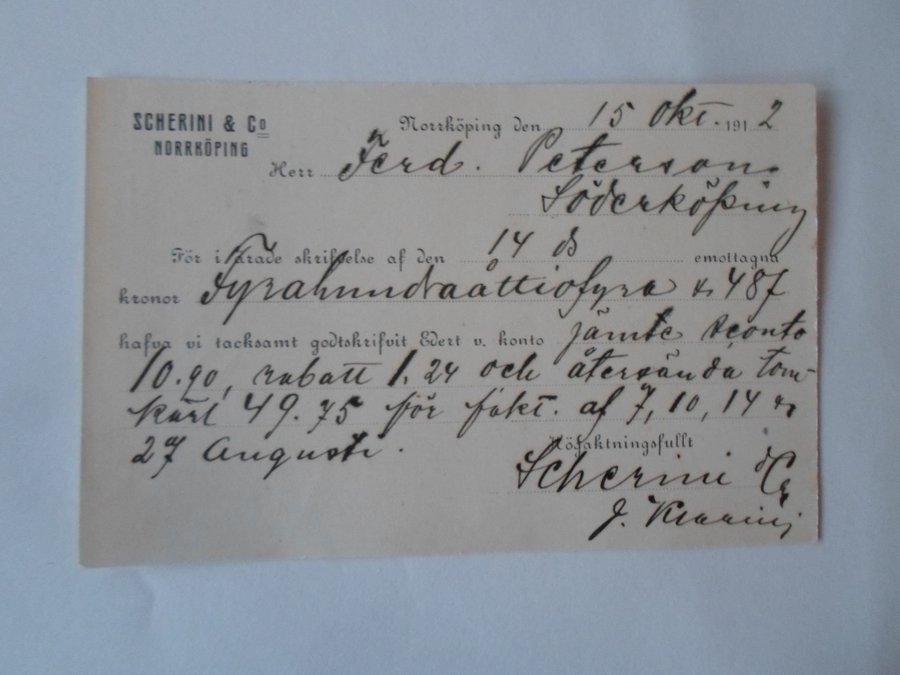 SCHERINI & Co
NORRKÖPING
Norrköping den 15 Okt. 1912
Herr Ferd. Peterson.
Söderköping
För i ärade skrifvelse af den 14 ds emottagna
kronor Fyrahundraåttiofyra kr 484
hafva vi tacksamt godtskrifvit Edert v. konto jämte sconto
10.90, rabatt 1.24 och återsända tom-
kärl 49.75 för fakt. af 7, 10, 14 &
27 Augusti.
Högaktningsfullt
Scherini & Co
J.